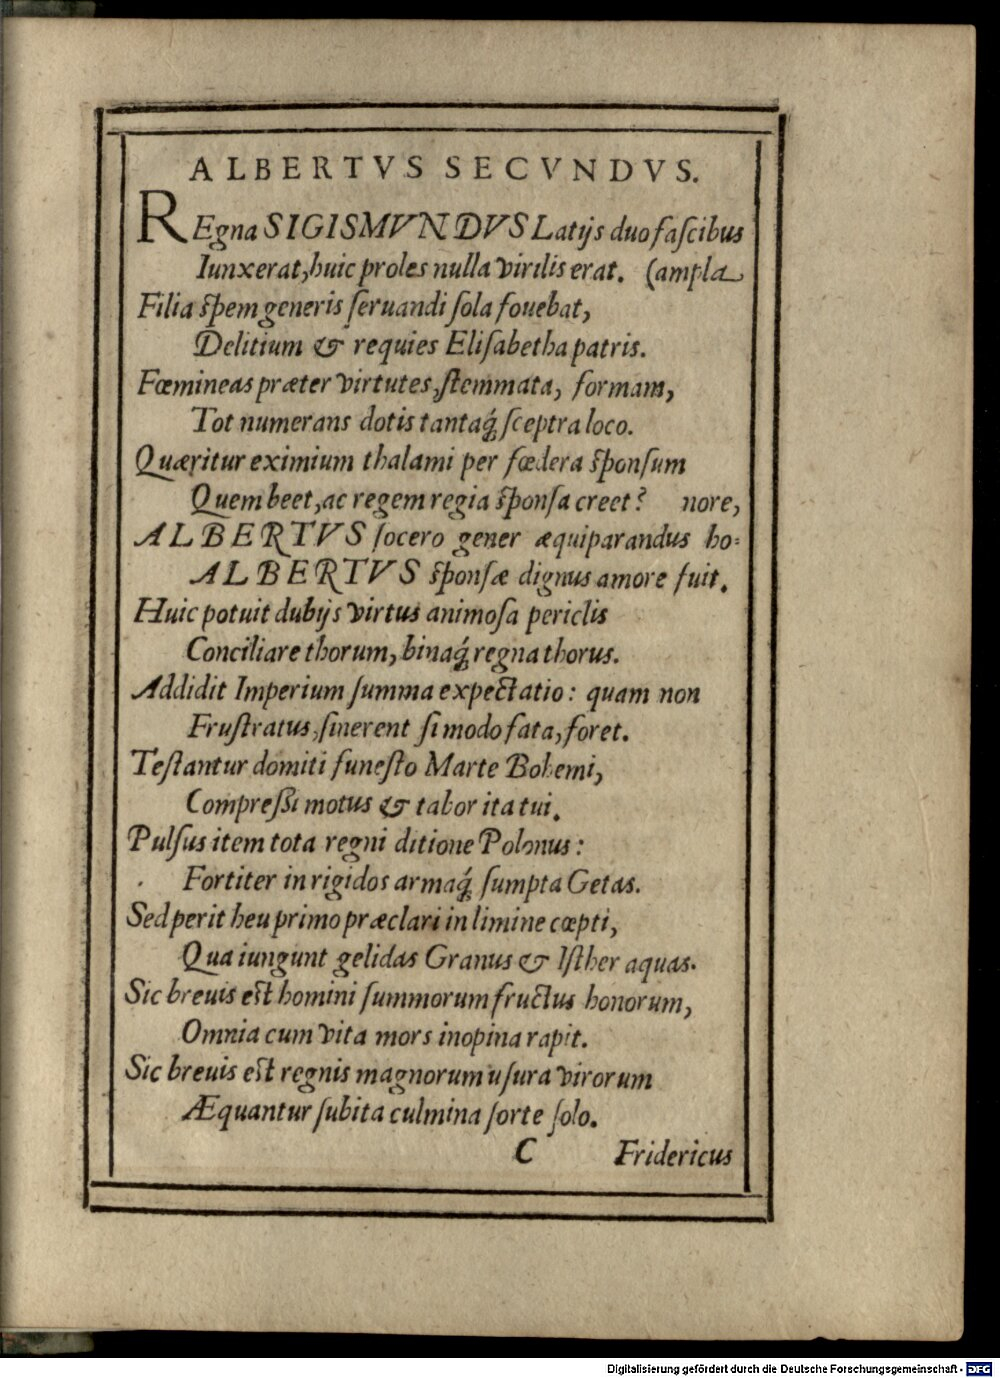 ALBERTVS SECVNDVS.
REgna SIGISMVNDVS Latijs duo faſcibus
Iunxerat, huic proles nulla virilis erat. (ampla
Filia ſpem generis ſeruandi ſola fouebat,
Delitium & requies Eliſabetha patris.
Fœmineas præter virtutes, ſtemmata, formam,
Tot numerans dotis tantaq́; ſceptra loco.
Quæritur eximium thalami per fœdera ſponſum
Quem beet, ac regem regia ſponſa creet? nore,
ALBERTVS ſocero gener æquiparandus ho-
ALBERTVS ſponſæ dignus amore fuit.
Huic potuit dubijs virtus animoſa periclis
Conciliare thorum, binaq́; regna thorus.
Addidit Imperium ſumma expectatio: quam non
Fruſtratus, ſinerent ſi modo fata, foret.
Teſtantur domiti funeſto Marte Bohemi,
Compreſſi motus & tabor ita tui.
Pulſus item tota regni ditione Polonus:
Fortiter in rigidos armaq́; ſumpta Getas.
Sed perit heu primo præclari in limine cœpti,
Qua iungunt gelidas Granus & Iſther aquas.
Sic breuis eſt homini ſummorum fructus honorum,
Omnia cum vita mors inopina rapit.
Sic breuis eſt regnis magnorum uſura virorum
Æquantur ſubita culmina ſorte ſolo.
C Fridericus
Digitalisierung gefördert durch die Deutsche Forschungsgemeinschaft - DFG